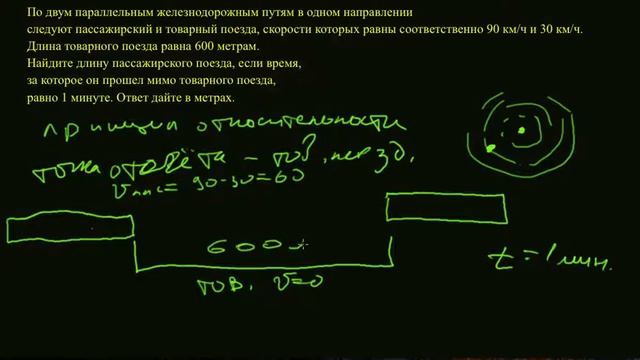 По двум параллельным железнодорожным путям в одном направлении
следуют пассажирский и товарный поезда, скорости которых равны соответственно 90 км/ч и 30 км/ч.
Длина товарного поезда равна 600 метрам.
Найдите длину пассажирского поезда, если время,
за которое он прошел мимо товарного поезда,
равно 1 минуте. Ответ дайте в метрах.
принцип относительности
точка отсчёта – тов.
= 90-30=60
600
t = 1 мин.
тов. v=0